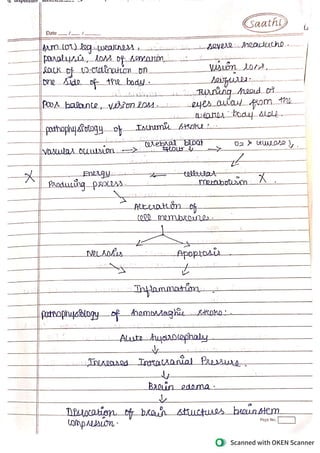 Saathi
Date ___/___/___
arm (or) leg weakness. severe headache.
paralysis, loss of sensation Vision loss,
lack of co-ordination on seizures.
one side of the body. Turning head or
Poor balance, vision loss. eyes away from the
body side.
pathophysiology of Ischemic stroke:
Vascular occlusion → cerebral blood flow ↓ → O2 > Glucose ↓
X Energy Producing process ← cellular metabolism X
Alteration of
cell membranes
Necrosis Apoptosis
Inflammation
pathophysiology of hemorraghic stroke:
Acute hydrocephaly
↓
Increased Intracranial Pressure.
↓
Brain edema.
↓
Dislocation of brain structures brainstem
compression.
Page No.
Scanned with OKEN Scanner